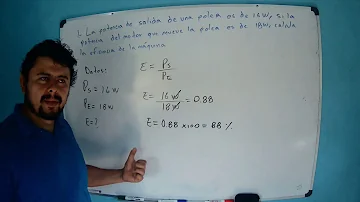 1. La potencia de salida de una polea es de 16W, si la
potencia del motor que mueve la polea es de 18W, calcula
la eficiencia de la máquina
Datos:
Ps = 16 W
PE = 18 W
E = ?
E = Ps / PE
E = 16 W / 18 W = 0.88
E = 0.88 x 100 = 88 %